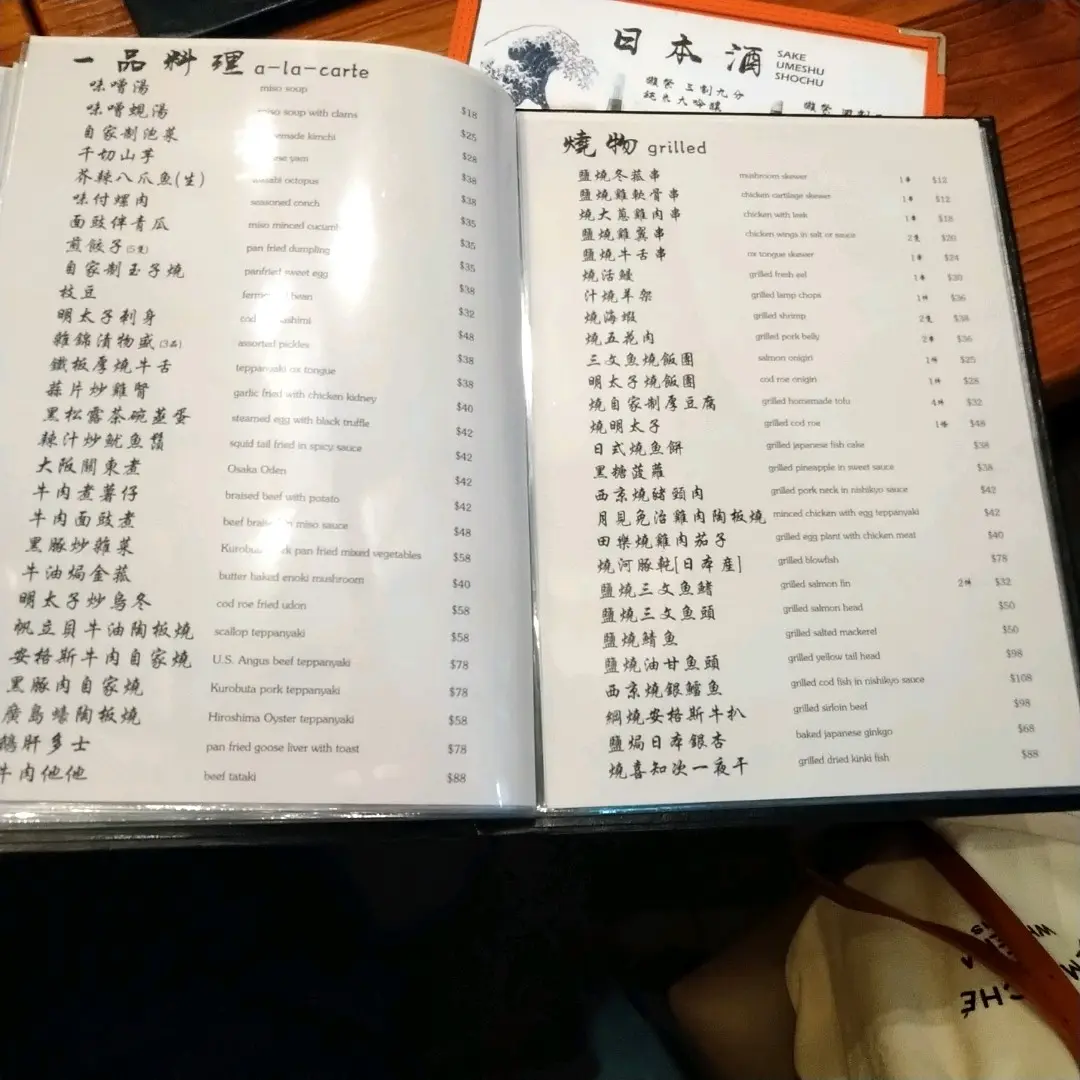 日本酒 SAKE UMESHU SHOCHU
獺祭 三割九分
純米大吟醸
一品料理 a-la-carte
味噌湯 miso soup $18
味噌蜆湯 miso soup with clams $25
自家制泡菜 kimchi $28
千切山芋 yam $38
芥辣八爪魚(生) wasabi octopus $38
味付螺肉 seasoned conch $35
面豉伴青瓜 miso minced $35
煎餃子(5隻) pan fried dumpling $35
自家制玉子燒 panfried sweet egg $38
枝豆 bean $32
明太子刺身 cod $48
雜錦漬物盛(3品) assorted pickles $38
鐵板厚燒牛舌 teppanyaki ox tongue $38
蒜片炒雞腎 garlic fried with chicken kidney $40
黑松露茶碗蒸蛋 steamed egg with black truffle $42
辣汁炒魷魚鬚 squid tail fried in spicy sauce $42
大阪關東煮 Osaka Oden $42
牛肉煮薯仔 braised beef with potato $42
牛肉面豉煮 beef in miso sauce $48
黑豚炒雜菜 pan fried mixed vegetables $58
牛油焗金菇 butter baked enoki mushroom $40
明太子炒烏冬 cod roe fried udon $58
帆立貝牛油陶板燒 scallop teppanyaki $58
安格斯牛肉自家燒 U.S. Angus beef teppanyaki $78
黑豚肉自家燒 Kurobuta pork teppanyaki $78
廣島蠔陶板燒 Hiroshima Oyster teppanyaki $58
鵝肝多士 pan fried goose liver with toast $78
牛肉他他 beef tataki $88
燒物 grilled
鹽燒冬菰串 mushroom skewer 1串 $12
鹽燒雞軟骨串 chicken cartilage skewer 1串 $12
燒大蔥雞肉串 chicken with leak 1串 $18
鹽燒雞翼串 chicken wings in salt or sauce 2隻 $20
鹽燒牛舌串 ox tongue skewer 1串 $24
燒活鰻 grilled fresh eel 1串 $30
汁燒羊架 grilled lamp chops 1件 $36
燒海蝦 grilled shrimp 2隻 $38
燒五花肉 grilled pork belly 2串 $36
三文魚燒飯團 salmon onigiri 1件 $25
明太子燒飯團 cod roe onigiri 1件 $28
燒自家制厚豆腐 grilled homemade tofu 4件 $32
燒明太子 grilled cod roe 1條 $48
日式燒魚餅 grilled japanese fish cake $38
黑糖菠蘿 grilled pineapple in sweet sauce $38
西京燒豬頸肉 grilled pork neck in nishikyo sauce $42
月見免治雞肉陶板燒 minced chicken with egg teppanyaki $42
田樂燒雞肉茄子 grilled egg plant with chicken meat $40
燒河豚乾[日本産] grilled blowfish $78
鹽燒三文魚鰭 grilled salmon fin 2件 $32
鹽燒三文魚頭 grilled salmon head $50
鹽燒鯖魚 grilled salted mackerel $50
鹽燒油甘魚頭 grilled yellow tail head $98
西京燒銀鱈魚 grilled cod fish in nishikyo sauce $108
網燒安格斯牛扒 grilled sirloin beef $98
鹽焗日本銀杏 baked japanese ginkgo $68
燒喜知次一夜干 grilled dried kinki fish $88